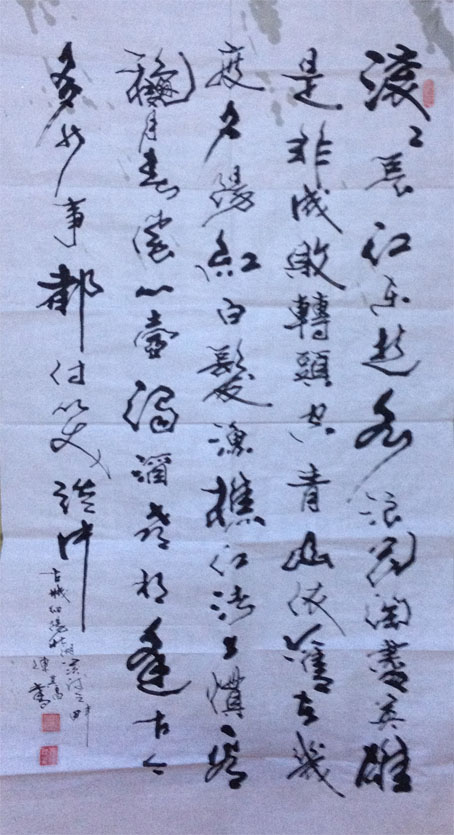 滚〻長江东逝水浪花淘盡英雄
是非成敗轉頭空青山依舊在幾
度夕陽紅白髮漁樵江渚上慣看
龝月春風一壺濁酒喜相逢古今
多少事都付笑談中
古城
陳書